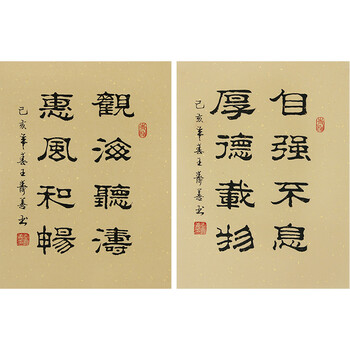 觀海聽濤
惠風和暢
己亥年春王壽善书
自强不息
厚德載物
己亥年春王壽善书